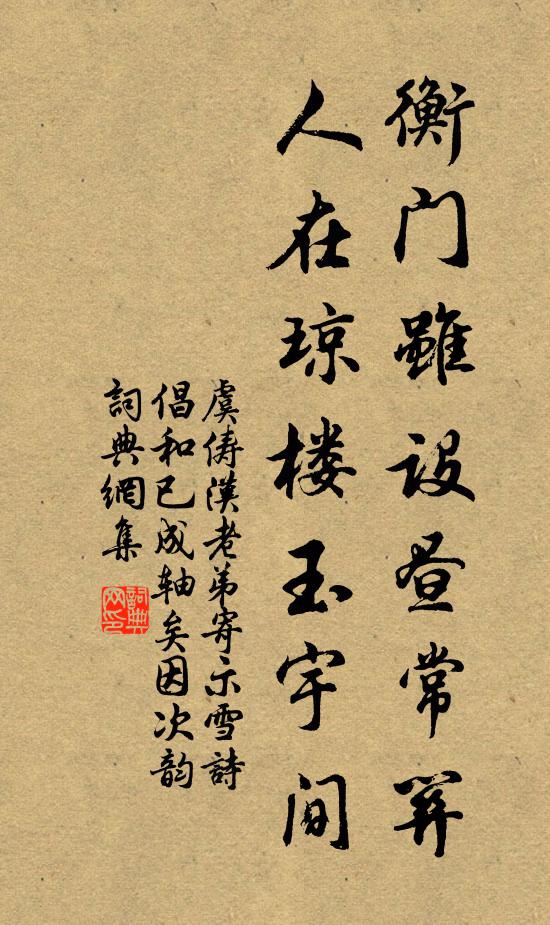 衡门雖设昼常關
人在琼楼玉宇间
虞俦漢老弟寄示雪詩
倡和已成轴矣因次韵
詞典網集
詞典网印